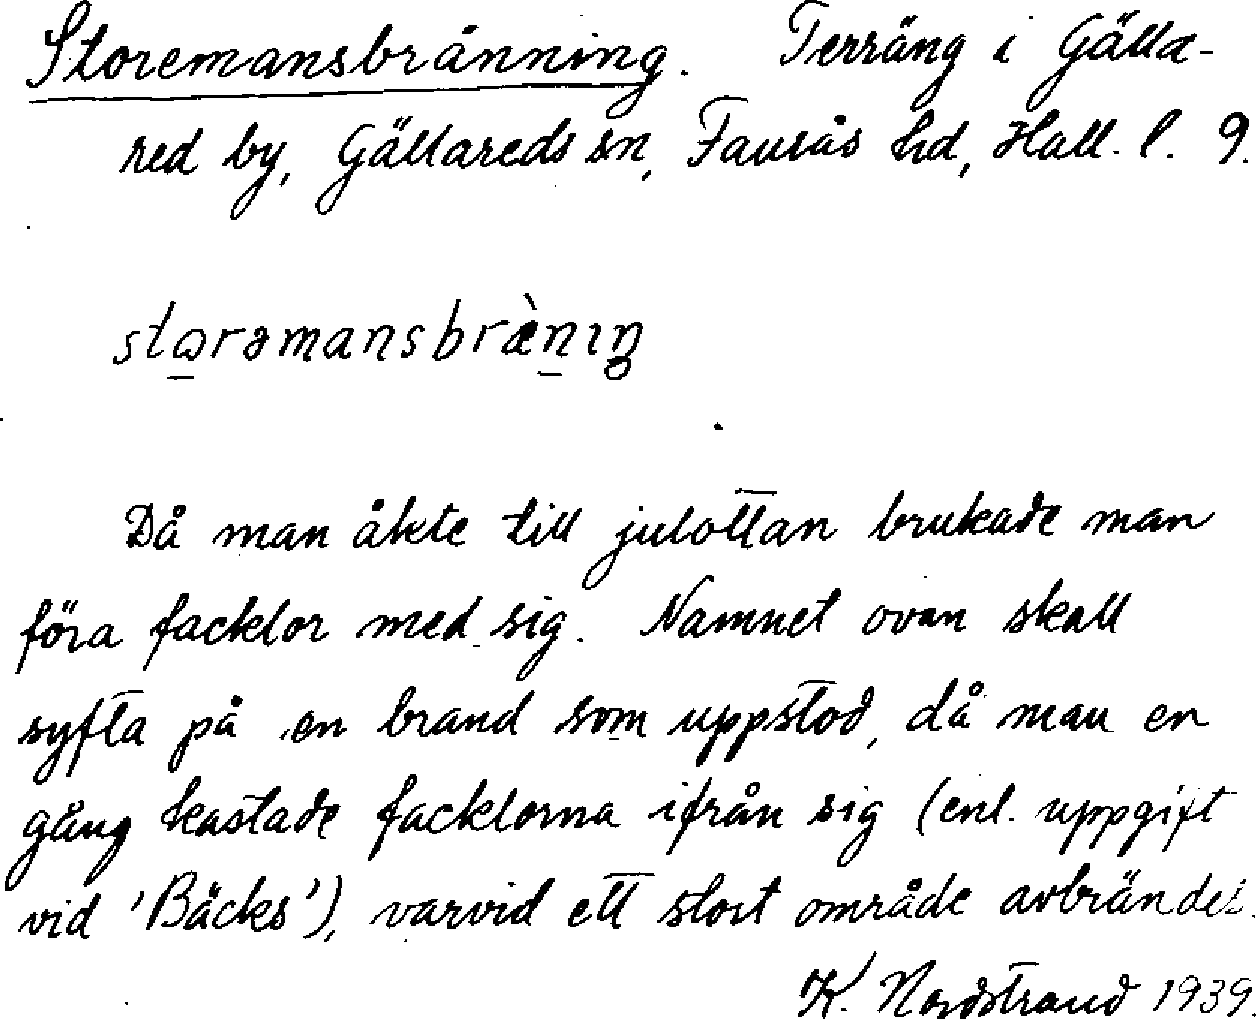 Storemansbränning. Terräng i Gälla-
red by, Gällareds sn, Faurås hd, Hall. l. 9.
stɷrəmansbræ̀nıŋ
Då man åkte till julottan brukade man
föra facklor med sig. Namnet ovan skall
syfta på en brand som uppstod, då man en
gång kastade facklorna ifrån sig (enl. uppgift
vid 'Bäcks'), varvid ett stort område avbrändes.
K. Nordstrand 1939.